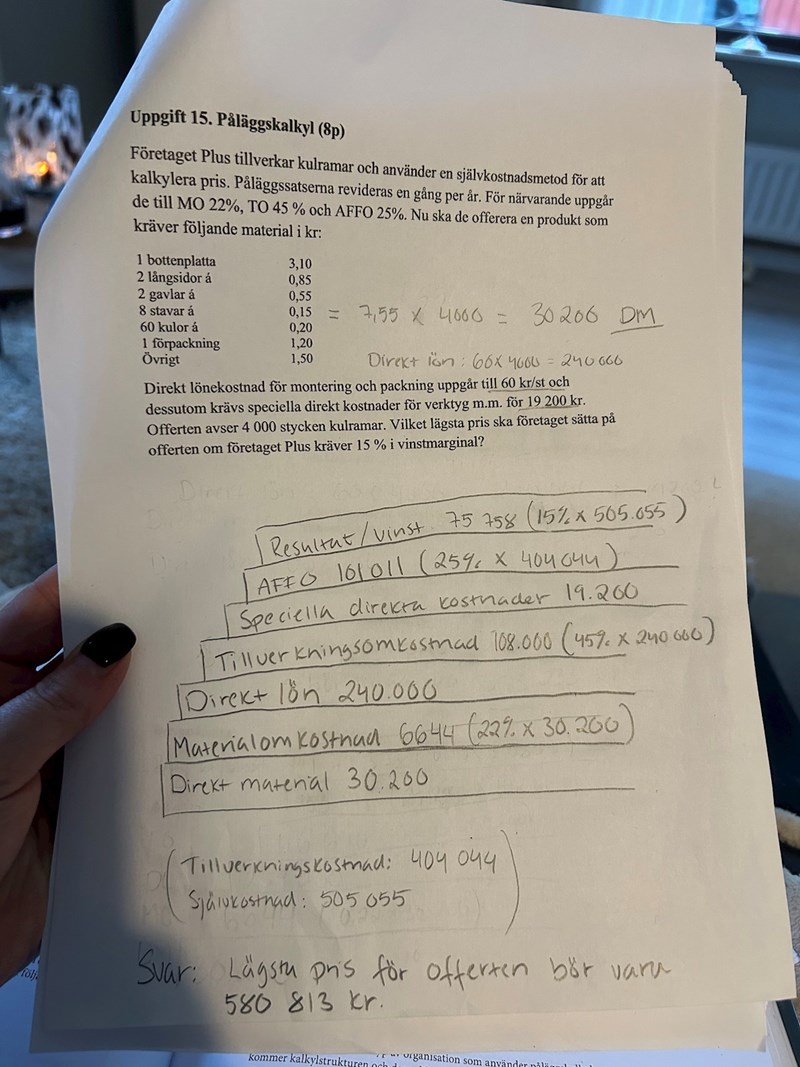 Uppgift 15. Påläggskalkyl (8p)
Företaget Plus tillverkar kulramar och använder en självkostnadsmetod för att
kalkylera pris. Påläggssatserna revideras en gång per år. För närvarande uppgår
de till MO 22%, TO 45 % och AFFO 25%. Nu ska de offerera en produkt som
kräver följande material i kr:
1 bottenplatta 3,10
2 långsidor á 0,85
2 gavlar á 0,55
8 stavar á 0,15 = 7,55 × 4000 = 30 200 DM
60 kulor á 0,20
1 förpackning 1,20
Övrigt 1,50 Direkt lön: 60 × 4000 = 240 000
Direkt lönekostnad för montering och packning uppgår till 60 kr/st och
dessutom krävs speciella direkt kostnader för verktyg m.m. för 19 200 kr.
Offerten avser 4 000 stycken kulramar. Vilket lägsta pris ska företaget sätta på
offerten om företaget Plus kräver 15 % i vinstmarginal?
Resultat/vinst 75 758 (15% × 505.055)
AFFO 101 011 (25% × 404 044)
Speciella direkta kostnader 19.200
Tillverkningsomkostnad 108.000 (45% × 240 000)
Direkt lön 240.000
Materialomkostnad 6644 (22% × 30.200)
Direkt material 30.200
(Tillverkningskostnad: 404 044
Självkostnad: 505 055)
Svar: Lägsta pris för offerten bör vara
580 813 kr.
organisation som använder
kommer kalkylstrukturen